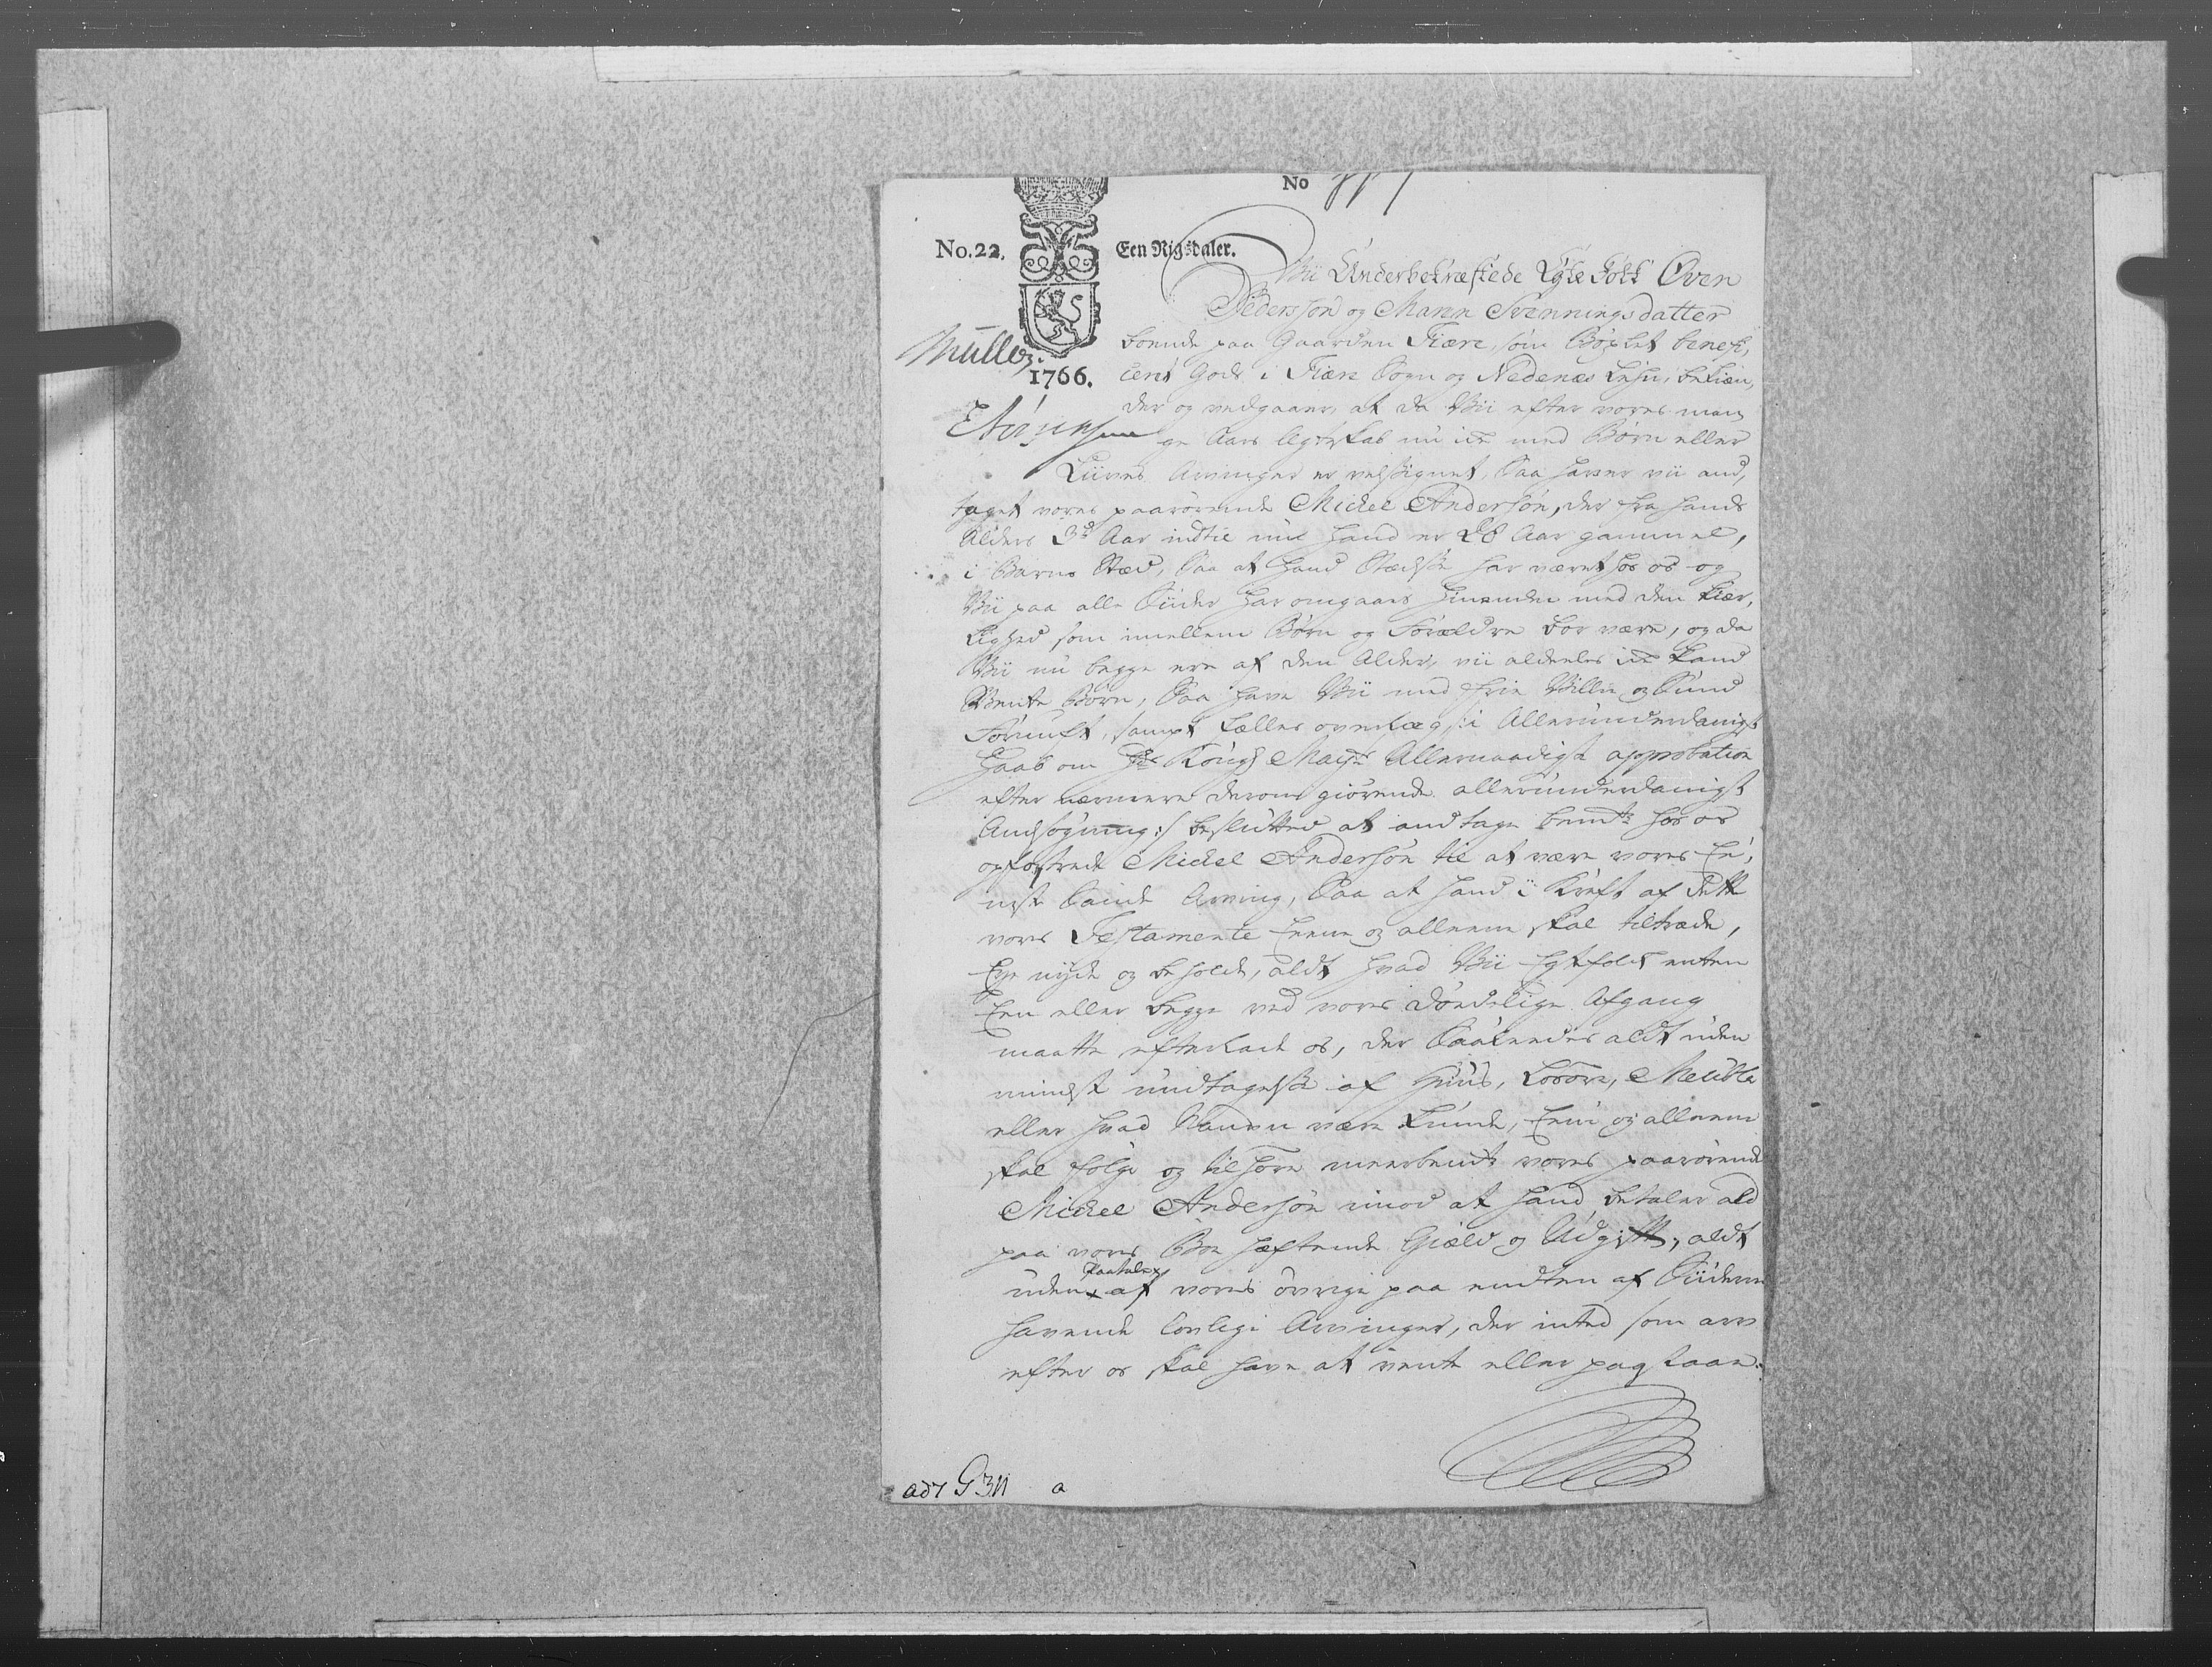 No
No. 22.
Een Rigsdaler.
Wii Underbekræftede Egte Folk Oven
Pedersøn og Maren Svenningsdatter
boende paa Gaarden Fiære, som Bøxlet benefi,
ceret Gods i Fiære Sogn og Nedenæs Lehn, bekiæn,
Müller.
1766.
der og vedgaaer, at da Wii efter vores man,
ge Aars Egteskab nu icke med Børn eller
Liivs Arvinger er velsignet, Saa haver vii and,
taget vores paarørende Mickel Andersøn, der fra hands
Alders 3de Aar indtil nu hand er 28 Aar gammel,
i Barns Sted, Saa at hand Stedse har været hos os og
Wii paa alle Siider har omgaaes hinanden med den kier,
lighed som imellem Børn og Forældre bør være, og da
Wii nu begge ere af den Alder, vii aldeeles icke kand
Vente Børn, Saa have Wii med frie Villie og Sund
Fornuft, sampt fælles overlæg, /:i Allerunderdanigst
Haab om Hs Kongl Mayts Allernaadigst approbation
efter nærmere derom giørende allerunderdanigst
Ansøgning:/ beslutted at andtage bemte hos os
opfostrede Mickel Andersøn til at være vores Ee,
niste Sande Arving, Saa at hand i Kraft af dette
vores Testamente Eene og alleene skal tiltræde,
Eye nyde og beholde, aldt hvad Wii Egtefolk enten
Een eller begge ved vores Dødelige Afgang
maatte efterlade os, der Saaledes aldt uden
mindste undtagelse af Huus, Løsøre, Meubler
eller hvad Navn være kunde, Eene og alleene
skal følge og tilhøre meerbemte vores paarørende
Mickel Andersøn imod at hand betaler ald
paa vores Boe hæftende Giæld og Udgift, aldt
Paatale
uden af vores øvrige paa endten af Siiderne
havende lovlige Arvinger, der inted som arv
efter os skal have at vente eller paastaae.
ad 7 G 3N a